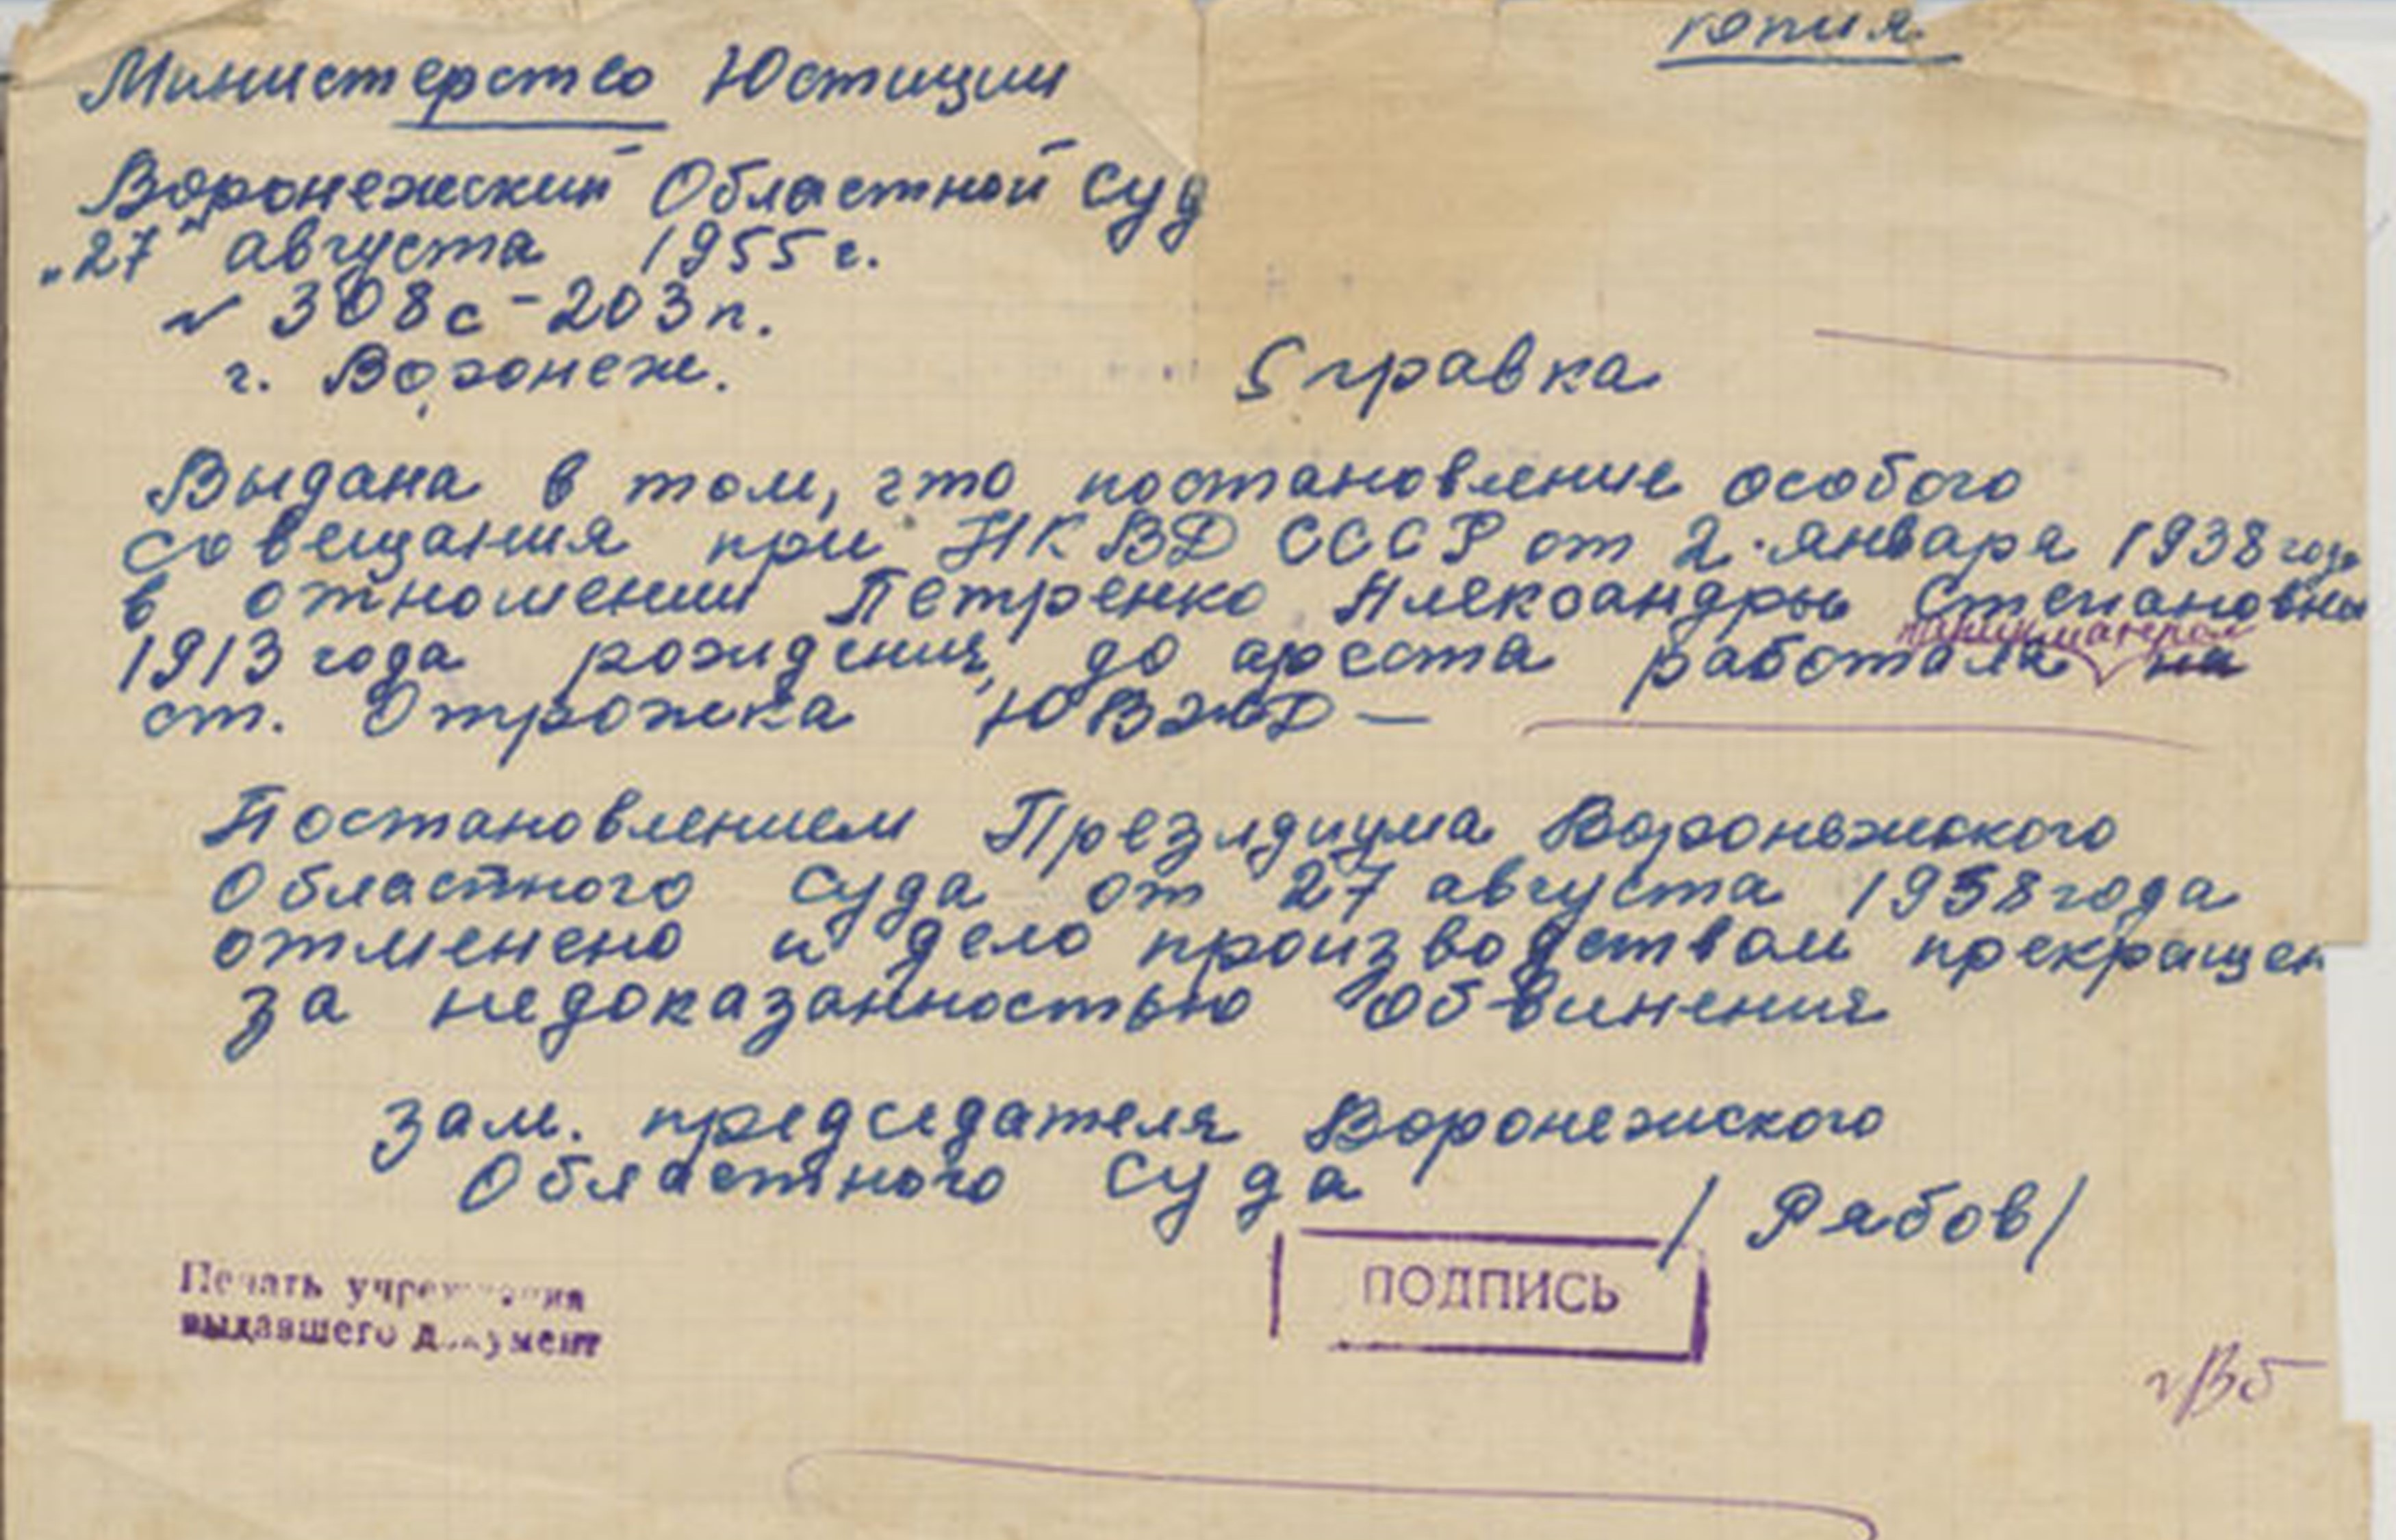 копия
Министерство Юстиции
Воронежский Областной Суд
"27" августа 1955 г.
№ 308с-203п.
г. Воронеж.
Справка
Выдана в том, что постановление особого
совещания при НКВД СССР от 2 января 1938 года
в отношении Петренко Александры Степановны
1913 года рождения, до ареста работала на
ст. Отрожка ЮВЖД —
Постановлением Президиума Воронежского
Областного Суда от 27 августа 1958 года
отменено и дело производством прекращен
за недоказанностью обвинения
Зам. председателя Воронежского
Областного Суда
/ Рябов /
ПОДПИСЬ
Печать учреждения
выдавшего документ